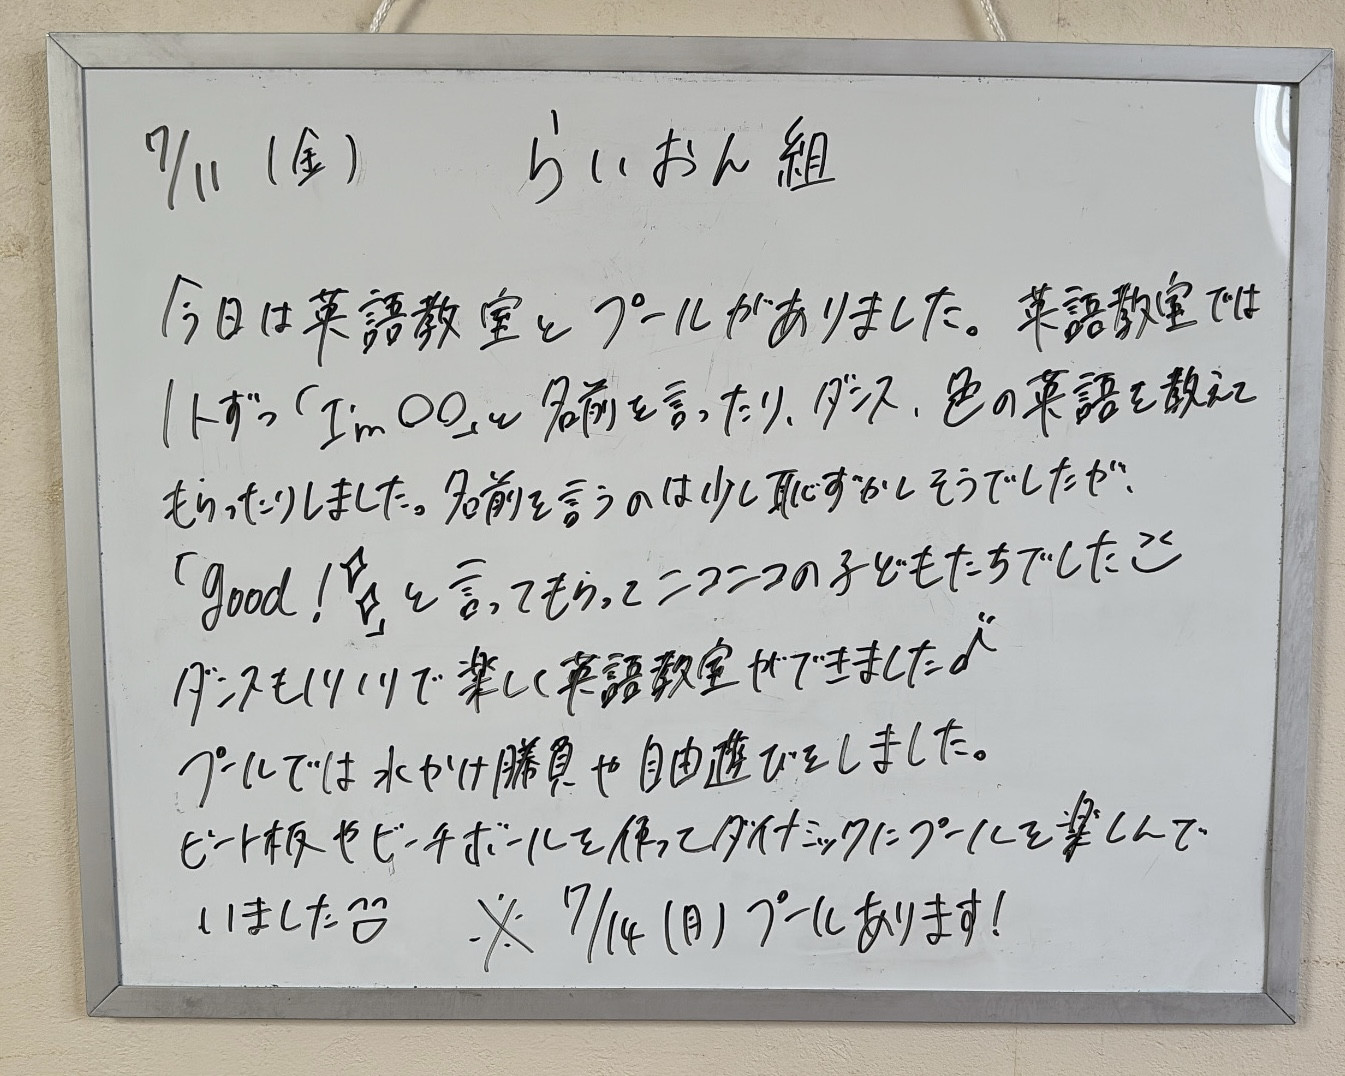 7/11 (金) らいおん組
今日は英語教室とプールがありました。英語教室では
1人ずつ「I'm 〇〇」と名前を言ったり、ダンス、色の英語を教えて
もらったりしました。名前を言うのは少し恥ずかしそうでしたが、
「good!✧✧」と言ってもらってニコニコの子どもたちでした
ダンスもノリノリで楽しく英語教室ができました♪
プールでは水かけ勝負や自由遊びをしました。
ビート板やビーチボールを使ってダイナミックにプールを楽しんで
いました ※7/14(月)プールあります!